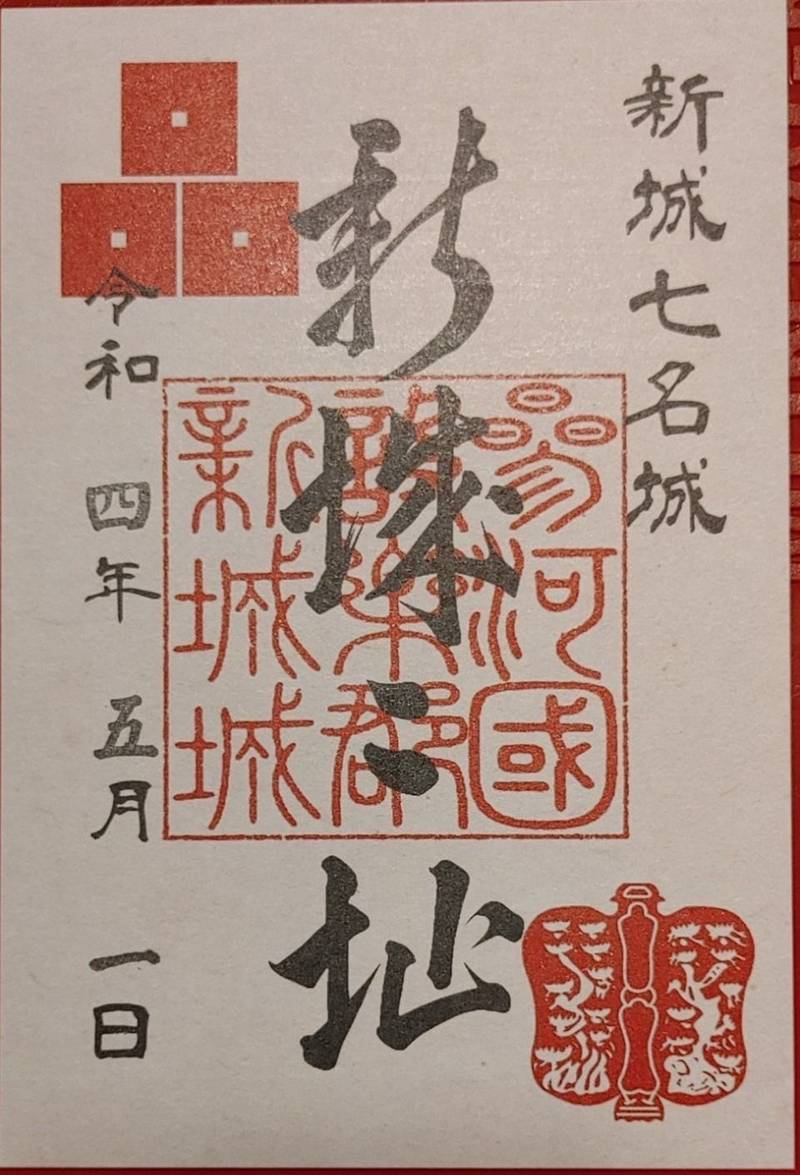 新城七名城
新城〻址
參河國
設樂郡
新城城
令和 四年 五月 一日